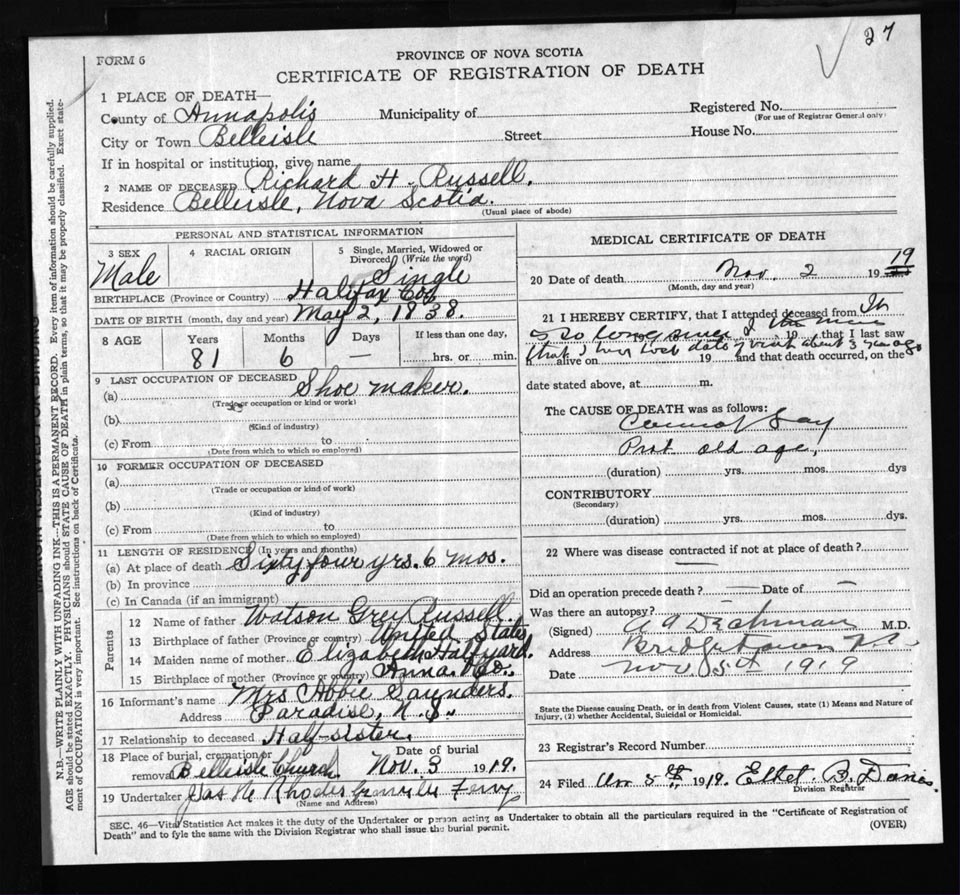 27
FORM 6
PROVINCE OF NOVA SCOTIA
CERTIFICATE OF REGISTRATION OF DEATH
1 PLACE OF DEATH—
County of Annapolis Municipality of Registered No.
(For use of Registrar General only)
City or Town Belleisle Street House No.
If in hospital or institution, give name
2 NAME OF DECEASED Richard H. Russell.
Residence Belleisle, Nova Scotia.
(Usual place of abode)
PERSONAL AND STATISTICAL INFORMATION
3 SEX 4 RACIAL ORIGIN 5 Single, Married, Widowed or
Divorced (Write the word)
Male Single
BIRTHPLACE (Province or Country) Halifax Co
DATE OF BIRTH (month, day and year) May 2, 1838.
8 AGE Years Months Days If less than one day,
81 6 — hrs. or min.
9 LAST OCCUPATION OF DECEASED
(a) Shoe maker.
(Trade or occupation or kind or work)
(b)
(Kind of industry)
(c) From to
(Date from which to which so employed)
10 FORMER OCCUPATION OF DECEASED
(a)
(Trade or occupation or kind of work)
(b)
(Kind of industry)
(c) From to
(Date from which to which so employed)
11 LENGTH OF RESIDENCE (In years and months)
(a) At place of death Sixty four yrs. 6 mos.
(b) In province
(c) In Canada (if an immigrant)
Parents
12 Name of father Watson Grey Russell.
13 Birthplace of father (Province or country) United States
14 Maiden name of mother Elizabeth Halfyard.
15 Birthplace of mother (Province or country) Anna. Co.
16 Informant's name Mrs Abbie Saunders.
Address Paradise, N.S.
17 Relationship to deceased Half-sister.
18 Place of burial, cremation or Date of burial
removal Belleisle Church. Nov. 3 1919.
19 Undertaker Jas H Rhodes Granville Ferry
(Name and Address)
MEDICAL CERTIFICATE OF DEATH
20 Date of death Nov. 2 19 19
(Month, day and year)
21 I HEREBY CERTIFY, that I attended deceased from It
is so long since I 19 , that I last saw
that I have lost date 3 years ago
h alive on 19 and that death occurred, on the
date stated above, at m.
The CAUSE OF DEATH was as follows:
Cannot Say
old age,
(duration) yrs. mos. dys
CONTRIBUTORY
(Secondary)
(duration) yrs. mos. dys.
22 Where was disease contracted if not at place of death?
—
Did an operation precede death? — Date of —
Was there an autopsy?
(Signed) M.D.
Address Bridgetown N.S.
Date Nov. 5th 1919
State the Disease causing Death, or in death from Violent Causes, state (1) Means and Nature of
Injury, (2) whether Accidental, Suicidal or Homicidal.
23 Registrar's Record Number
24 Filed 5th, 1919. Ethel B.
Division Registrar
SEC. 46—Vital Statistics Act makes it the duty of the Undertaker or person acting as Undertaker to obtain all the particulars required in the "Certificate of Registration of
Death" and to fyle the same with the Division Registrar who shall issue the burial permit. (OVER)
MARGIN RESERVED FOR BINDING
N.B.—WRITE PLAINLY WITH UNFADING INK—THIS IS A PERMANENT RECORD. Every item of information should be carefully supplied.
AGE should be stated EXACTLY. PHYSICIANS should STATE CAUSE OF DEATH in plain terms, so that it may be properly classified. Exact state-
ment of OCCUPATION is very important. See instructions on back of Certificate.